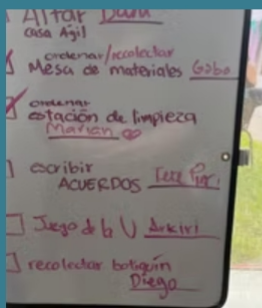 Altar Dani
casa Ágil
ordenar/recolectar
Mesa de materiales Gabo
ordenar
estación de limpieza
Marian
escribir
ACUERDOS
Juego de la U
recolectar botiquín
Diego